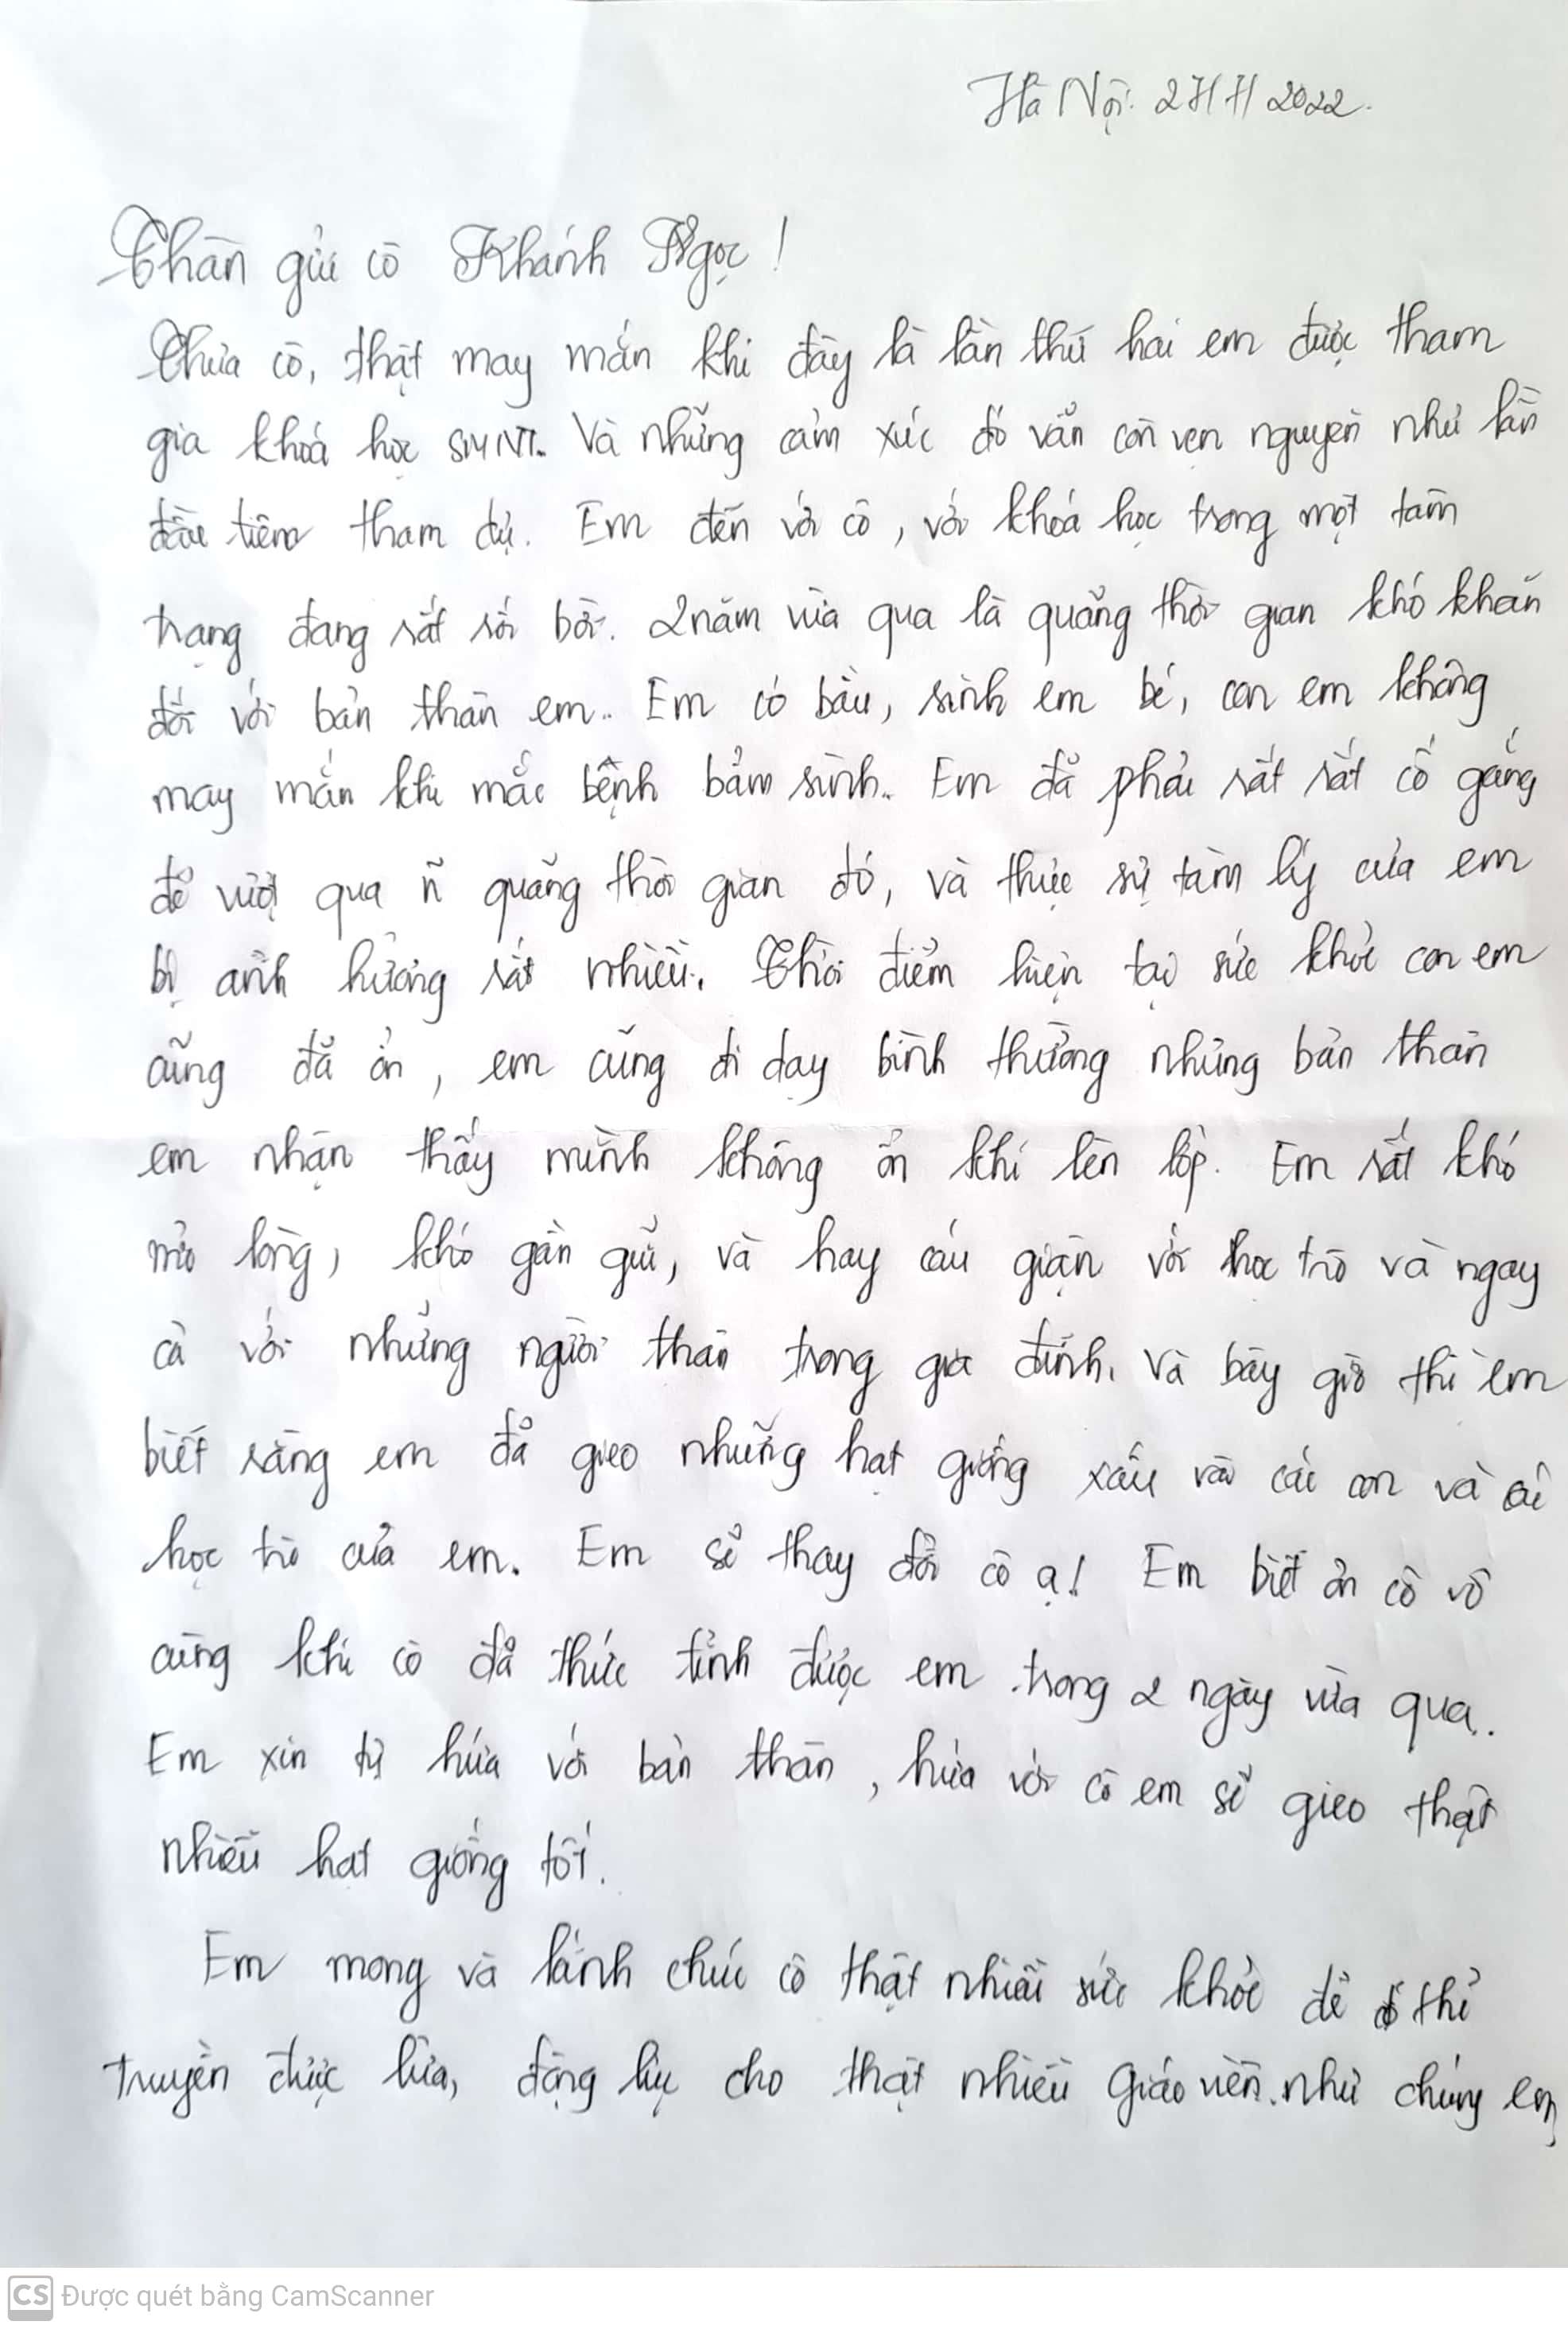 Hà Nội. 27/7/2022.
Thân gửi cô Khánh Ngọc!
Thưa cô, thật may mắn khi đây là lần thứ hai em được tham
gia khoá học SMNT. Và những cảm xúc đó vẫn còn vẹn nguyên như lần
đầu tiên tham dự. Em đến với cô, với khoá học trong một tâm
trạng đang rất rối bời. 2 năm vừa qua là quãng thời gian khó khăn
đối với bản thân em. Em có bầu, sinh em bé, con em không
may mắn khi mắc bệnh bẩm sinh. Em đã phải rất rất cố gắng
để vượt qua ñ quãng thời gian đó, và thực sự tâm lý của em
bị ảnh hưởng rất nhiều. Thời điểm hiện tại sức khoẻ con em
cũng đã ổn, em cũng đi dạy bình thường nhưng bản thân
em nhận thấy mình không ổn khi lên lớp. Em rất khó
mở lòng, khó gần gũi, và hay cáu giận với học trò và ngay
cả với những người thân trong gia đình. Và bây giờ thì em
biết rằng em đã gieo những hạt giống xấu vào các con và các
học trò của em. Em sẽ thay đổi cô ạ! Em biết ơn cô vô
cùng khi cô đã thức tỉnh được em trong 2 ngày vừa qua.
Em xin tự hứa với bản thân, hứa với cô em sẽ gieo thật
nhiều hạt giống tốt.
Em mong và kính chúc cô thật nhiều sức khoẻ để có thể
truyền được lửa, động lực cho thật nhiều giáo viên như chúng em
CS Được quét bằng CamScanner